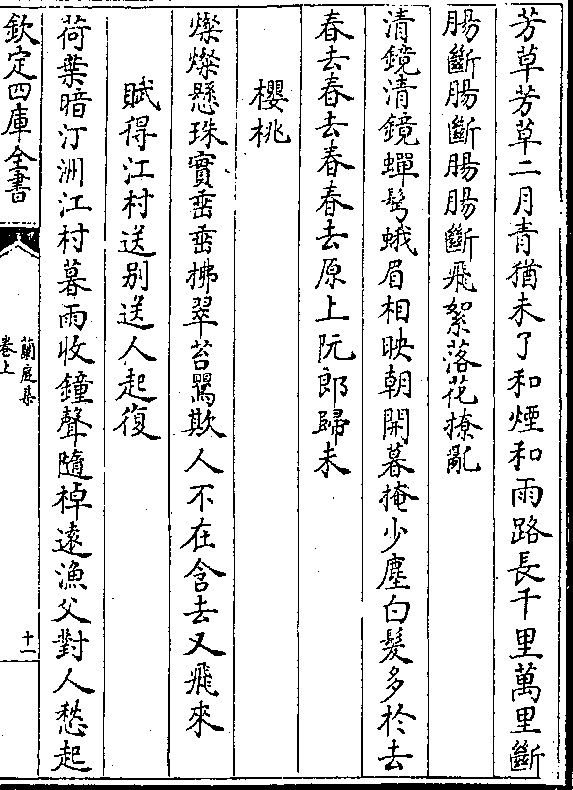 芳草芳草二月青猶未了和煙和雨路長千里萬里斷
腸斷腸斷腸腸斷飛絮落花撩亂
清鏡清鏡蟬鬢蛾眉相映朝開暮掩少塵白髮多於去
春去春去春春去原上阮郎歸未
櫻桃
燦燦懸珠實垂垂拂翠苔鸎欺人不在含去又飛來
賦得江村送别送人起復
荷葉暗汀洲江村暮雨收鐘聲隨棹遠漁父對人愁起
欽定四庫全書
蘭庭集
卷上
十一